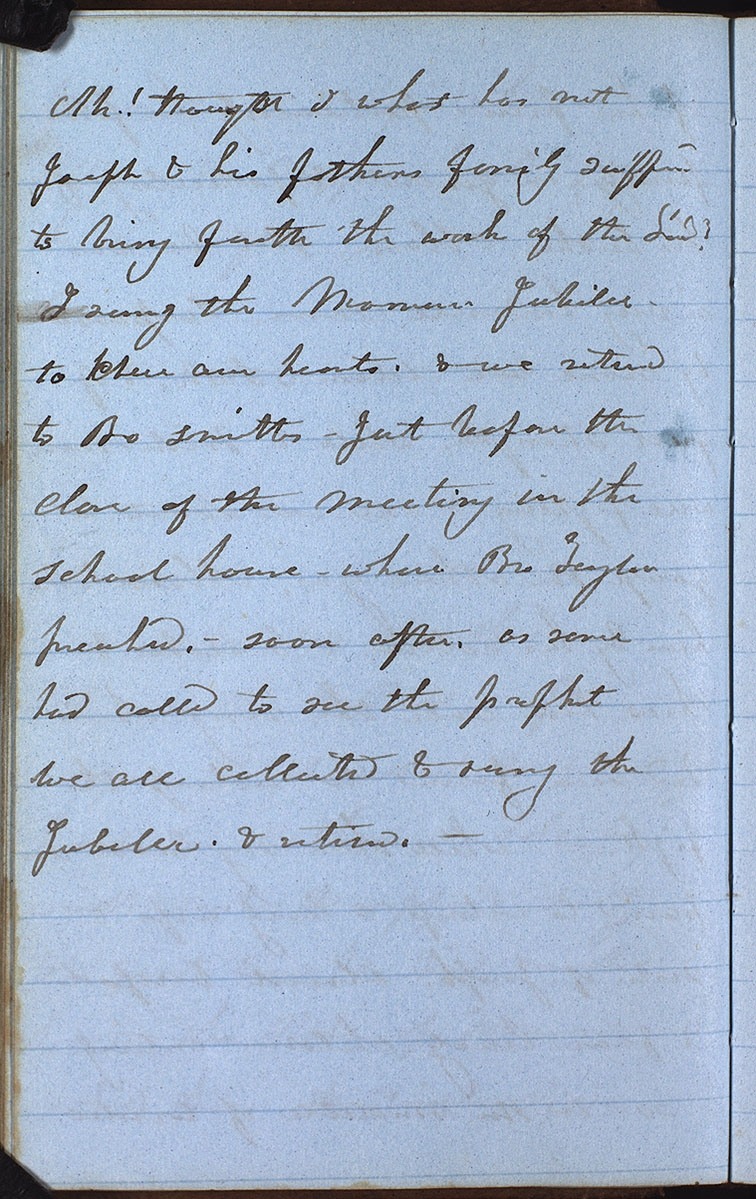 Ah! thought I what has not
Joseph & his fathers family suffrd
to bring forth the work of the Lord?
I sung the Mormon Jubilee
to cheer our hearts. & we retird
to Bro Smiths – Just before the
close of the meeting in the
school house – where Bro Taylor
preached. – soon after. as some
had called to see the prophet
we all collected & sung the
Jubilee. & retired. —